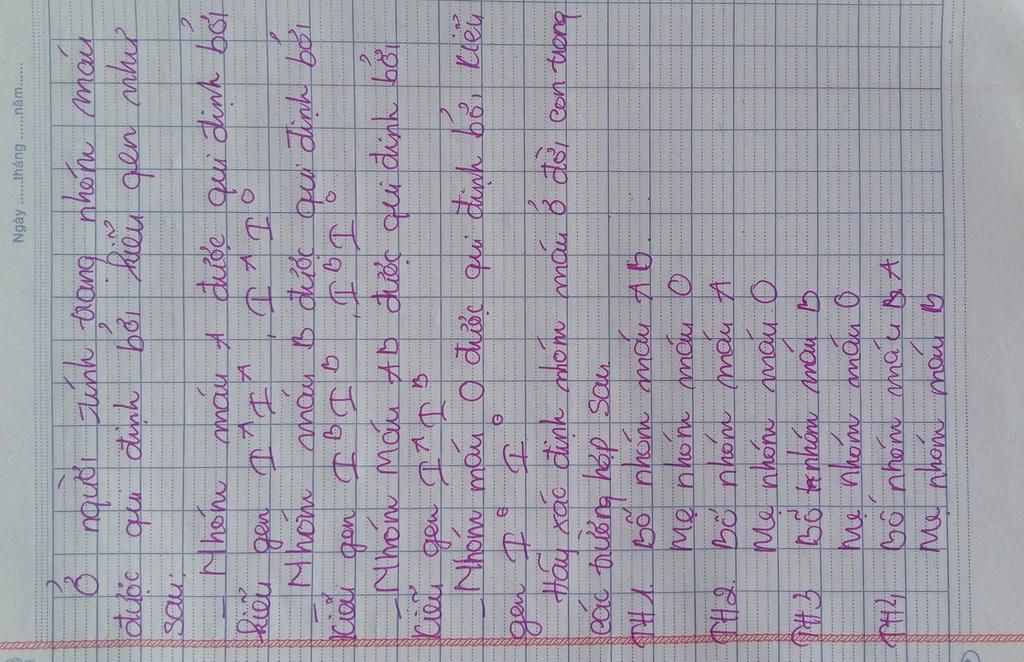 Ngày ......tháng ......năm......
Ở người tính trạng nhóm máu
được qui định bởi kiểu gen như
sau:
- Nhóm máu A được qui định bởi
kiểu gen I^A I^A, I^A I^O
- Nhóm máu B được qui định bởi
kiểu gen I^B I^B, I^B I^O
- Nhóm máu AB được qui định bởi
kiểu gen I^A I^B
- Nhóm máu O được qui định bởi kiểu
gen I^O I^O
Hãy xác định nhóm máu ở đời con trong
các trường hợp sau
TH1. Bố nhóm máu AB.
Mẹ nhóm máu O
TH2. Bố nhóm máu A
Mẹ nhóm máu O
TH3 Bố nhóm máu B
Mẹ nhóm máu O
TH4 Bố nhóm máu A
Mẹ nhóm máu B